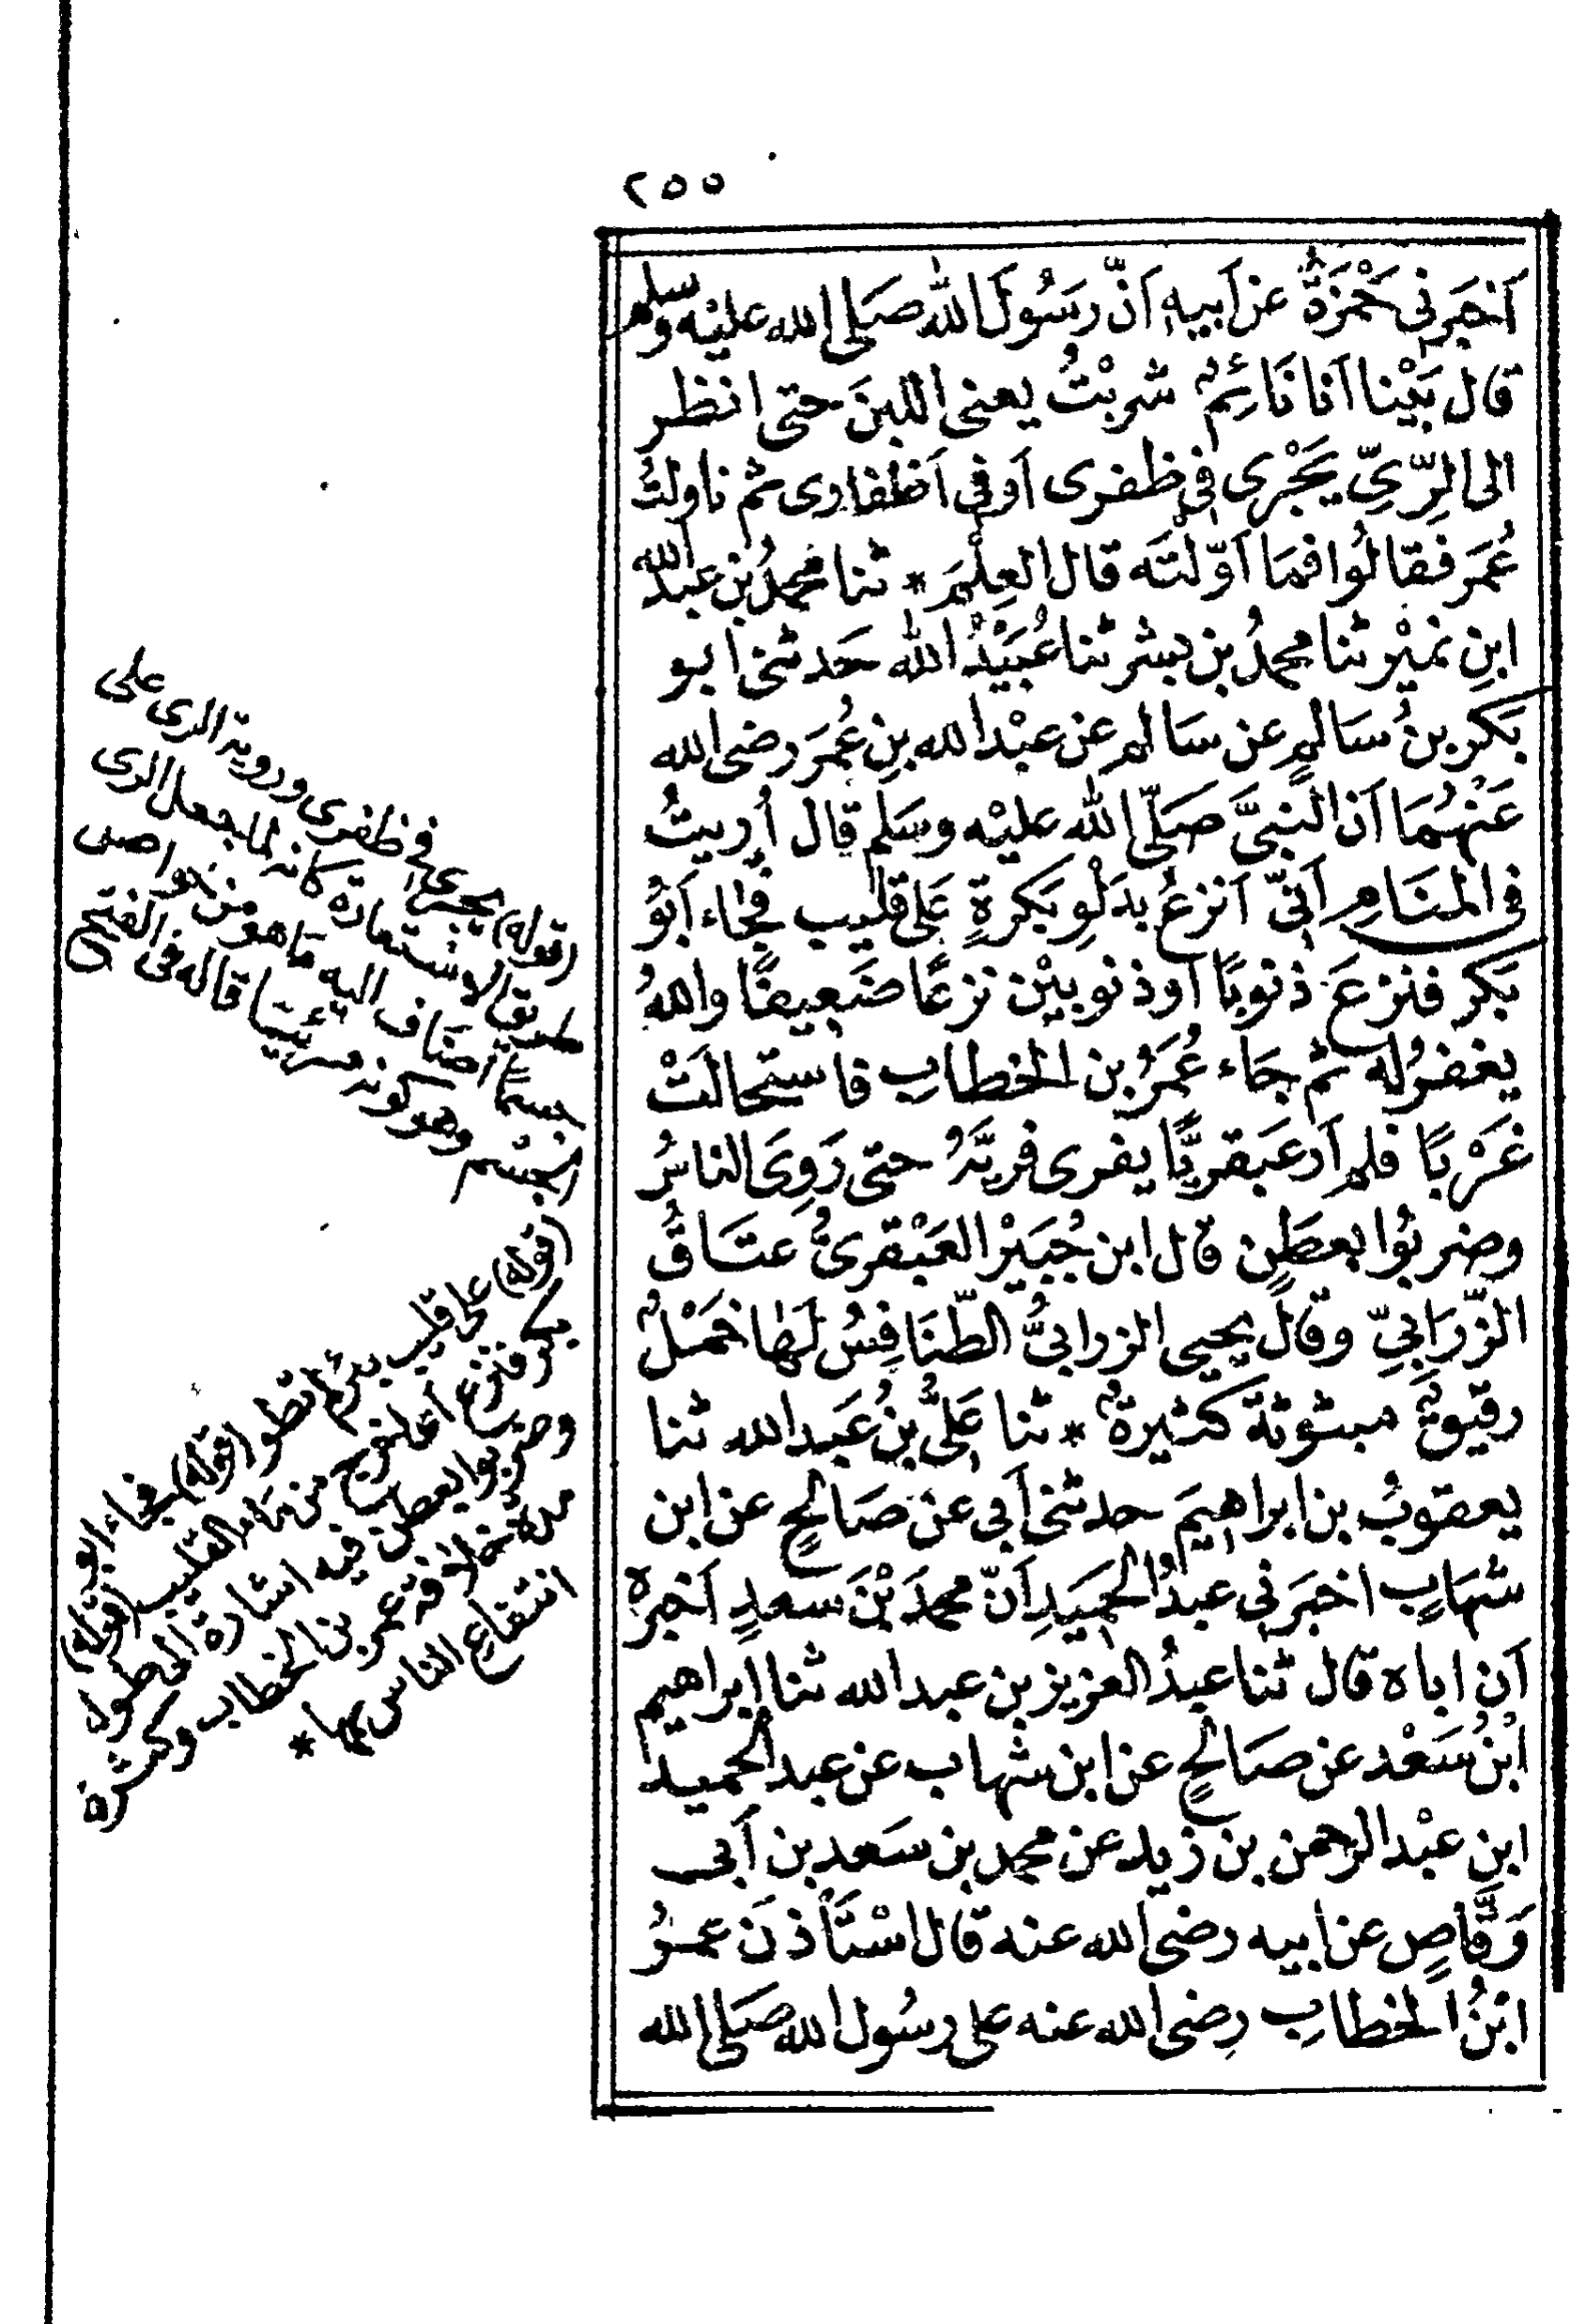 ٢٥٥
اَخبَرنِى حَمْزَةُ عن اَبيهِ اَنّ رسُولَ اللّٰه صَلى الله عليْه وسلم
قال بَيْنا اَنا نَائِمٌ شربْتُ يعنى اللبنَ حتى انظر
الى الرِّىِّ يَجْرى فِى ظفرى اَو فِى اَظفارى ثم ناولتُ
عُمَر فقالُوا فمَا اَوّلْتَه قال العِلْمَ * ثنا محمدُ بن عبد الله
ابنِ نميْر ثنا محمدُ بن بشر ثنا عُبَيْدُ اللّٰه حَدثنى ابو
بَكر بنُ سَالمٍ عن سَالم عن عبْد الله بنِ عُمَرَ رضى الله
عَنْهُمَا اَن النبىَّ صَلّى اللّٰه عليْه وسَلم قال اُريتُ
فى المنَامِ اَنّى اَنزعُ بدَلْوِ بَكرةٍ عَلى قَليب فجَاء اَبُو
بَكر فنزعَ ذنوبًا اَو ذنوبيْن نزعًا ضَعِيفًا واللهُ
يغفرُ له ثم جَاء عُمَرُ بن الخطابِ فاستحالَتْ
غَرْبًا فلم اَر عَبقريًّا يفرى فريَّهُ حتى رَوِىَ الناسُ
وضربُوا بعطَنٍ قال ابن جُبَيْر العَبْقرىُّ عتَاقُ
الزَّرَابِىِّ وقال يحيى الزرابىُّ الطّنَافِسُ لَهَا خَمَْلٌ
رقيقٌ مبثوثة كثيرةٌ * ثنا عَلِىُّ بنُ عَبد الله ثنا
يعقوبُ بن ابراهِيمَ حدثنى اَبى عن صَالحٍ عن ابن
شهَابٍ اخبَرَنِى عبدُ الحمَيدِ اَنّ محمدَ بْنَ سعدٍ اَخبره
اَن اباه قال ثنا عبدُ العزيز بن عبد الله ثنا ابراهيم
ابْنُ سَعْد عن صَالحٍ عن ابن شهاب عن عبد الحميد
ابنِ عبْد الرحمن بن زيد عن محمد بن سَعد بن اَبى
وَقَّاصٍ عن ابيه رضى الله عنه قال اسْتَأذنَ عمرُ
ابْنُ الخطابِ رضى الله عنه على رسُول الله صَلى الله
(قوله) يجرى فى ظفرى وروية الرى على
طريق الاستعارة كانه لما جعل الرى
جسمًا اضاف اليه مَا هو من خواص
الجسْم وهو كونه مرئيا قاله فى الفتح
(قوله) على قليب بئر لم تطو (قوله) فجاء ابو
بكر فنزع اَى اخرج من مَاء القليب (قوله)
وضربوا بعطن فيه اشارة الى طول
مدة خلافة عمر بن الخطاب وكثرة
انتفاع الناس بها *